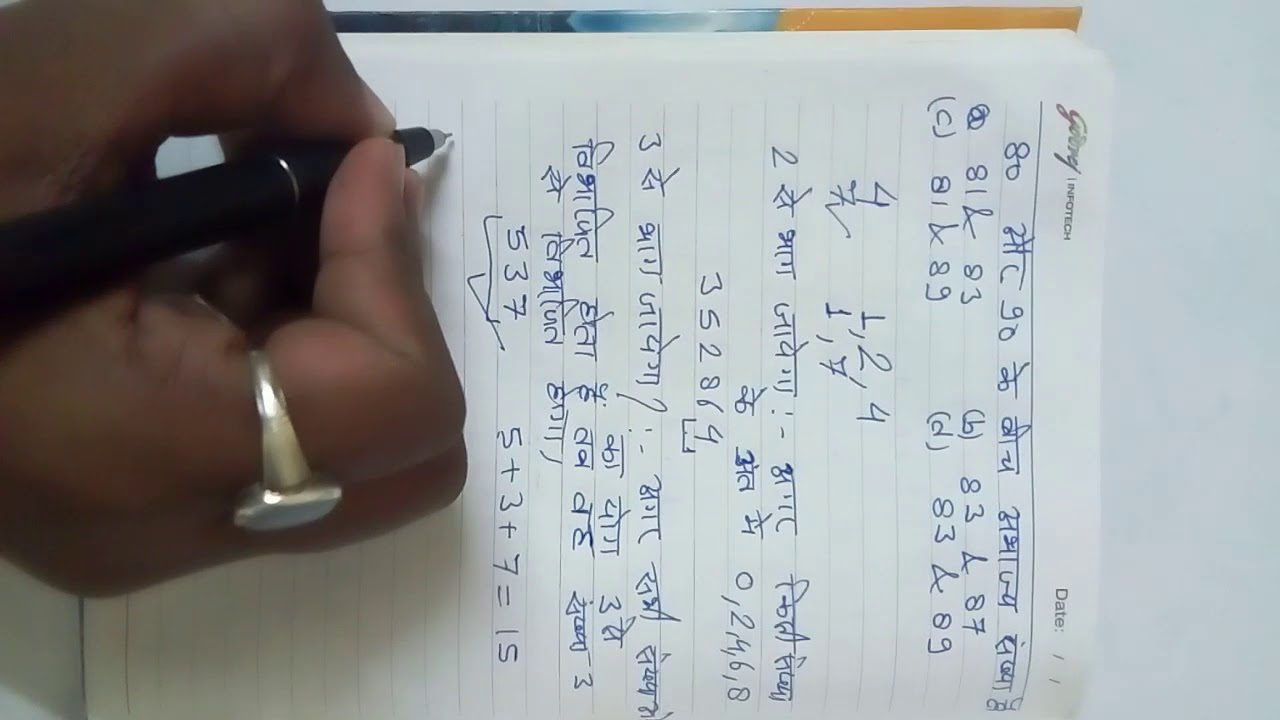 Godrej | INFOTECH
Date: / /
80 और 90 के बीच अभाज्य संख्या है
(a) 81 & 83 (b) 83 & 87
(c) 81 & 89 (d) 83 & 89
4 1, 2, 4
7 1, 7
2 से भाग जायेगा :- अगर किसी संख्या
के अंत में 0, 2, 4, 6, 8
352864
3 से भाग जायेगा ? :- अगर सभी संख्याओं
का योग 3 से
विभाजित होता है तब वह संख्या 3
से विभाजित होगा,
537 5+3+7=15